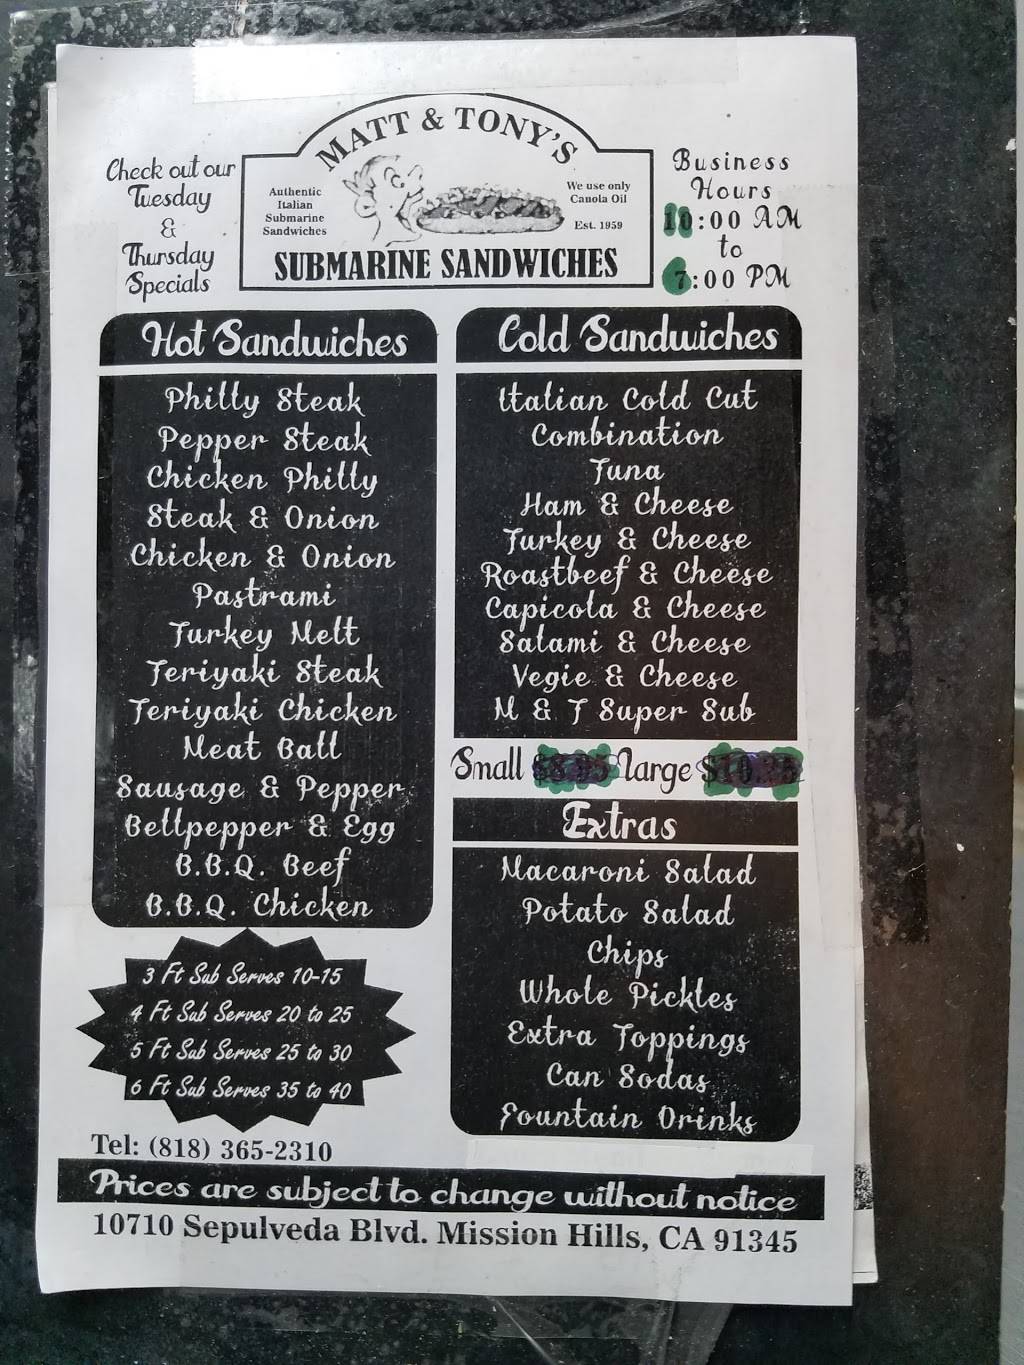 Check out our
Tuesday
&
Thursday
Specials
MATT & TONY'S
Authentic
Italian
Submarine
Sandwiches
We use only
Canola Oil
Est. 1959
SUBMARINE SANDWICHES
Business
Hours
10:00 AM
to
7:00 PM
Hot Sandwiches
Philly Steak
Pepper Steak
Chicken Philly
Steak & Onion
Chicken & Onion
Pastrami
Turkey Melt
Teriyaki Steak
Teriyaki Chicken
Meat Ball
Sausage & Pepper
Bellpepper & Egg
B.B.Q. Beef
B.B.Q. Chicken
3 Ft Sub Serves 10-15
4 Ft Sub Serves 20 to 25
5 Ft Sub Serves 25 to 30
6 Ft Sub Serves 35 to 40
Cold Sandwiches
Italian Cold Cut
Combination
Tuna
Ham & Cheese
Turkey & Cheese
Roastbeef & Cheese
Capicola & Cheese
Salami & Cheese
Vegie & Cheese
M & T Super Sub
Small $8.95 Large
Extras
Macaroni Salad
Potato Salad
Chips
Whole Pickles
Extra Toppings
Can Sodas
Fountain Drinks
Tel: (818) 365-2310
Prices are subject to change without notice
10710 Sepulveda Blvd. Mission Hills, CA 91345